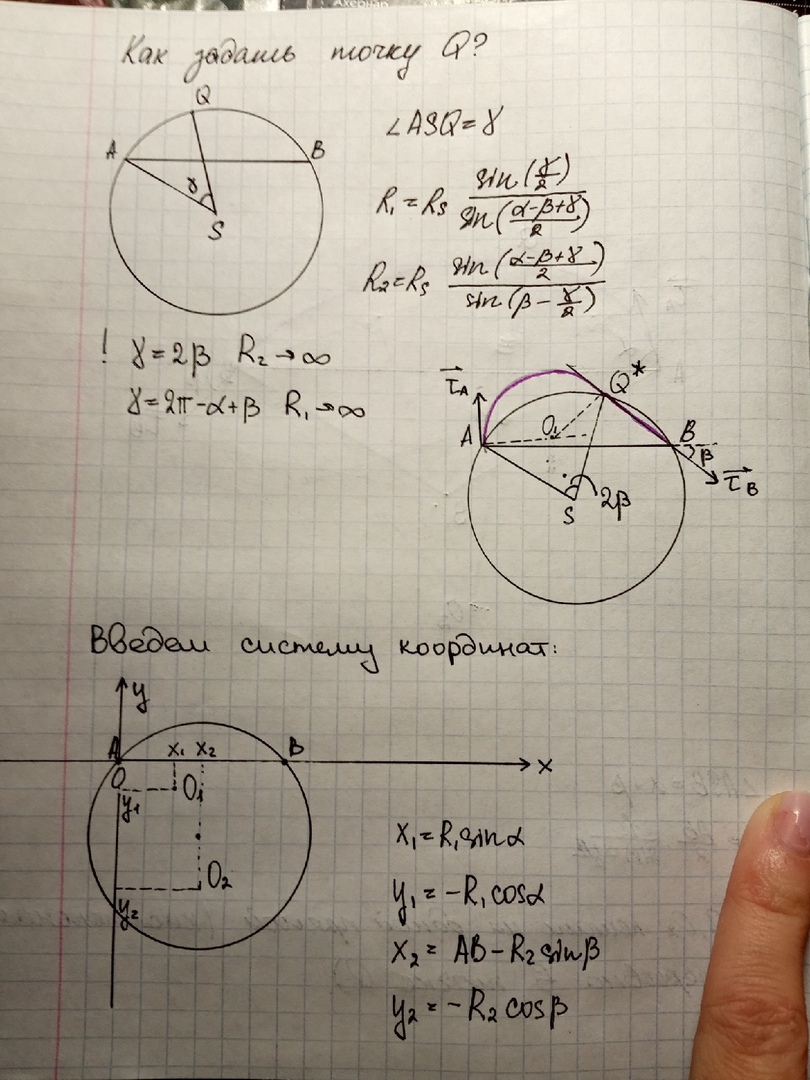 Как задать точку Q?
Q
A
B
γ
S
∠ASQ = γ
R₁ = Rs sin(γ/2) / sin((α-β+γ)/2)
R₂ = Rs sin((α-β+γ)/2) / sin(β - γ/2)
! γ = 2β R₂ → ∞
γ = 2π - α + β R₁ → ∞
τA
Q*
A
O₁
B
β
τB
S
2β
Введем систему координат:
y
A
x₁
x₂
B
x
O
y₁
O₁
O₂
y₂
x₁ = R₁ sinα
y₁ = -R₁ cosα
x₂ = AB - R₂ sinβ
y₂ = -R₂ cosβ